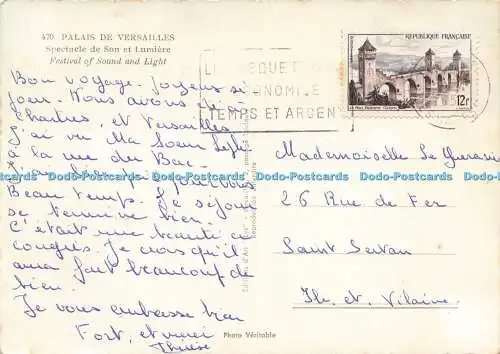 470 PALAIS DE VERSAILLES
Spectacle de Son et Lumière
Festival of Sound and Light
Bon voyage. Joyeux si
jour. Nous avons
Chartres, et Versailles
j'ai vu Ma Soeur
à la rue du Bac.
pour vous
Beau temps. Le séjour
se termine bien.
C'était une beauté ce
congrès. Je crois qu'il
aura fait beaucoup de
bien.
Je vous embrasse bien
Fort, et merci
Thérèse
REPUBLIQUE FRANÇAISE
12f
TEMPS ET ARGENT
Mademoiselle Le
26 Rue de Fer
Saint Servan
Ile et Vilaine
Photo Véritable
Dodo-Postcards Dodo-Postcards Dodo-Postcards Dodo-Postcards Dodo-Postcards